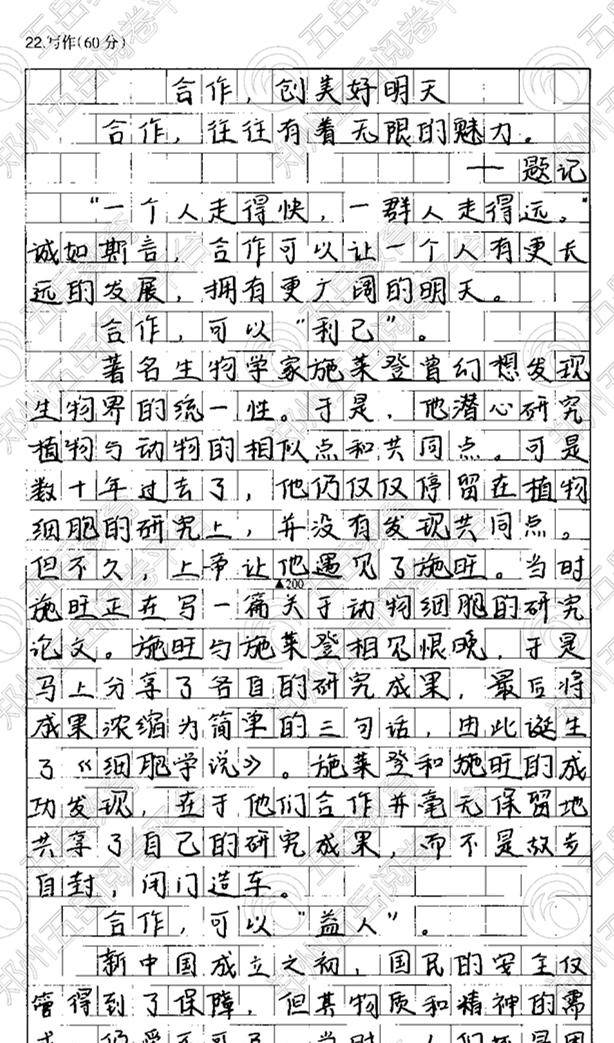 22.写作(60分)
合作，创美好明天
合作，往往有着无限的魅力。
——题记
“一个人走得快，一群人走得远。”
诚如斯言，合作可以让一个人有更长
远的发展，拥有更广阔的明天。
合作，可以“利己”。
著名生物学家施莱登曾幻想发现
生物界的统一性。于是，他潜心研究
植物与动物的相似点和共同点。可是
数十年过去了，他仍仅仅停留在植物
细胞的研究上，并没有发现共同点。
但不久，上帝让他遇见了施旺。当时
▲200
施旺正在写一篇关于动物细胞的研究
论文。施旺与施莱登相见恨晚，于是
马上分享了各自的研究成果，最后将
成果浓缩为简单的三句话，因此诞生
了《细胞学说》。施莱登和施旺的成
功发现，在于他们合作并毫无保留地
共享了自己的研究成果，而不是故步
自封，闭门造车。
合作，可以“益人”。
新中国成立之初，国民的安全仅
管得到了保障，但其物质和精神的需
郑州五岳阅卷平台